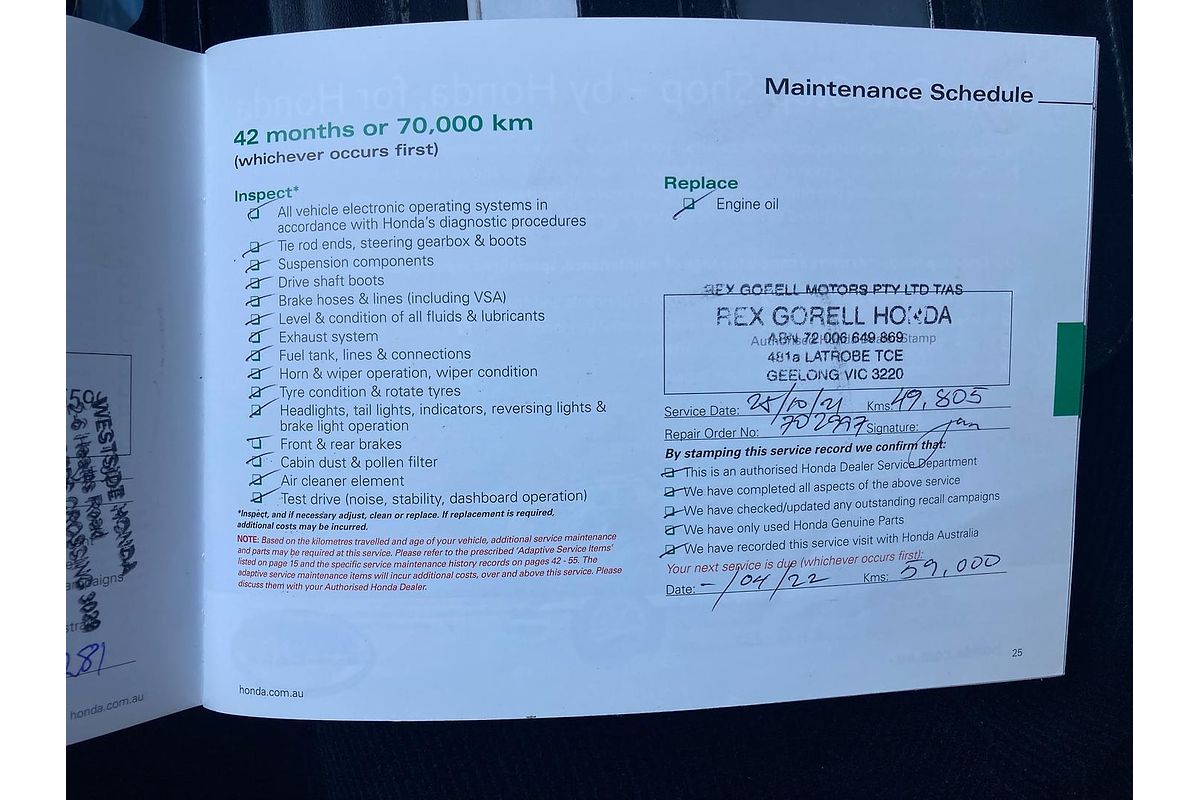 Maintenance Schedule
42 months or 70,000 km
(whichever occurs first)
Inspect*
All vehicle electronic operating systems in
accordance with Honda's diagnostic procedures
Tie rod ends, steering gearbox & boots
Suspension components
Drive shaft boots
Brake hoses & lines (including VSA)
Level & condition of all fluids & lubricants
Exhaust system
Fuel tank, lines & connections
Horn & wiper operation, wiper condition
Tyre condition & rotate tyres
Headlights, tail lights, indicators, reversing lights &
brake light operation
Front & rear brakes
Cabin dust & pollen filter
Air cleaner element
Test drive (noise, stability, dashboard operation)
*Inspect, and if necessary adjust, clean or replace. If replacement is required,
additional costs may be incurred.
NOTE: Based on the kilometres travelled and age of your vehicle, additional service maintenance
and parts may be required at this service. Please refer to the prescribed 'Adaptive Service Items'
listed on page 15 and the specific service maintenance history records on pages 42 - 55. The
adaptive service maintenance items will incur additional costs, over and above this service. Please
discuss them with your Authorised Honda Dealer.
honda.com.au
Replace
Engine oil
REX GORELL MOTORS PTY LTD T/AS
REX GORELL HONDA
ABN 72 006 649 869
481a LATROBE TCE
GEELONG VIC 3220
Service Date: 25/10/21 Kms: 49,805
Repair Order No: 702997 Signature:
By stamping this service record we confirm that:
This is an authorised Honda Dealer Service Department
We have completed all aspects of the above service
We have checked/updated any outstanding recall campaigns
We have only used Honda Genuine Parts
We have recorded this service visit with Honda Australia
Your next service is due (whichever occurs first):
Date: - /04/22 Kms: 59,000
25
WESTSIDE HONDA
CROSSING 3029
281
honda.com.au